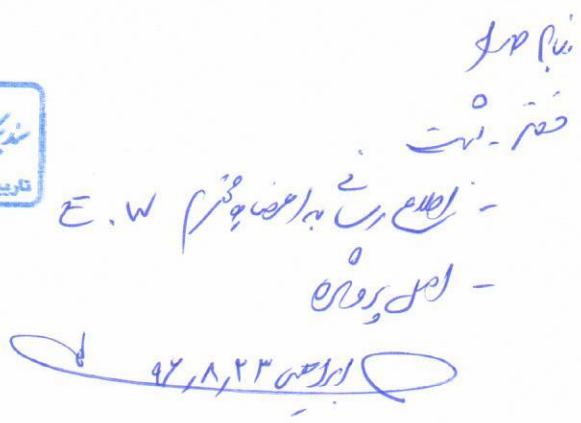 بنام خدا
دفتر - ثبت
- اطلاع رسانی به اعضاء محترم E.W
- اصل پرونده
ابراهیمی ۹۶,۸,۲۳
سندیکا
تاریخ